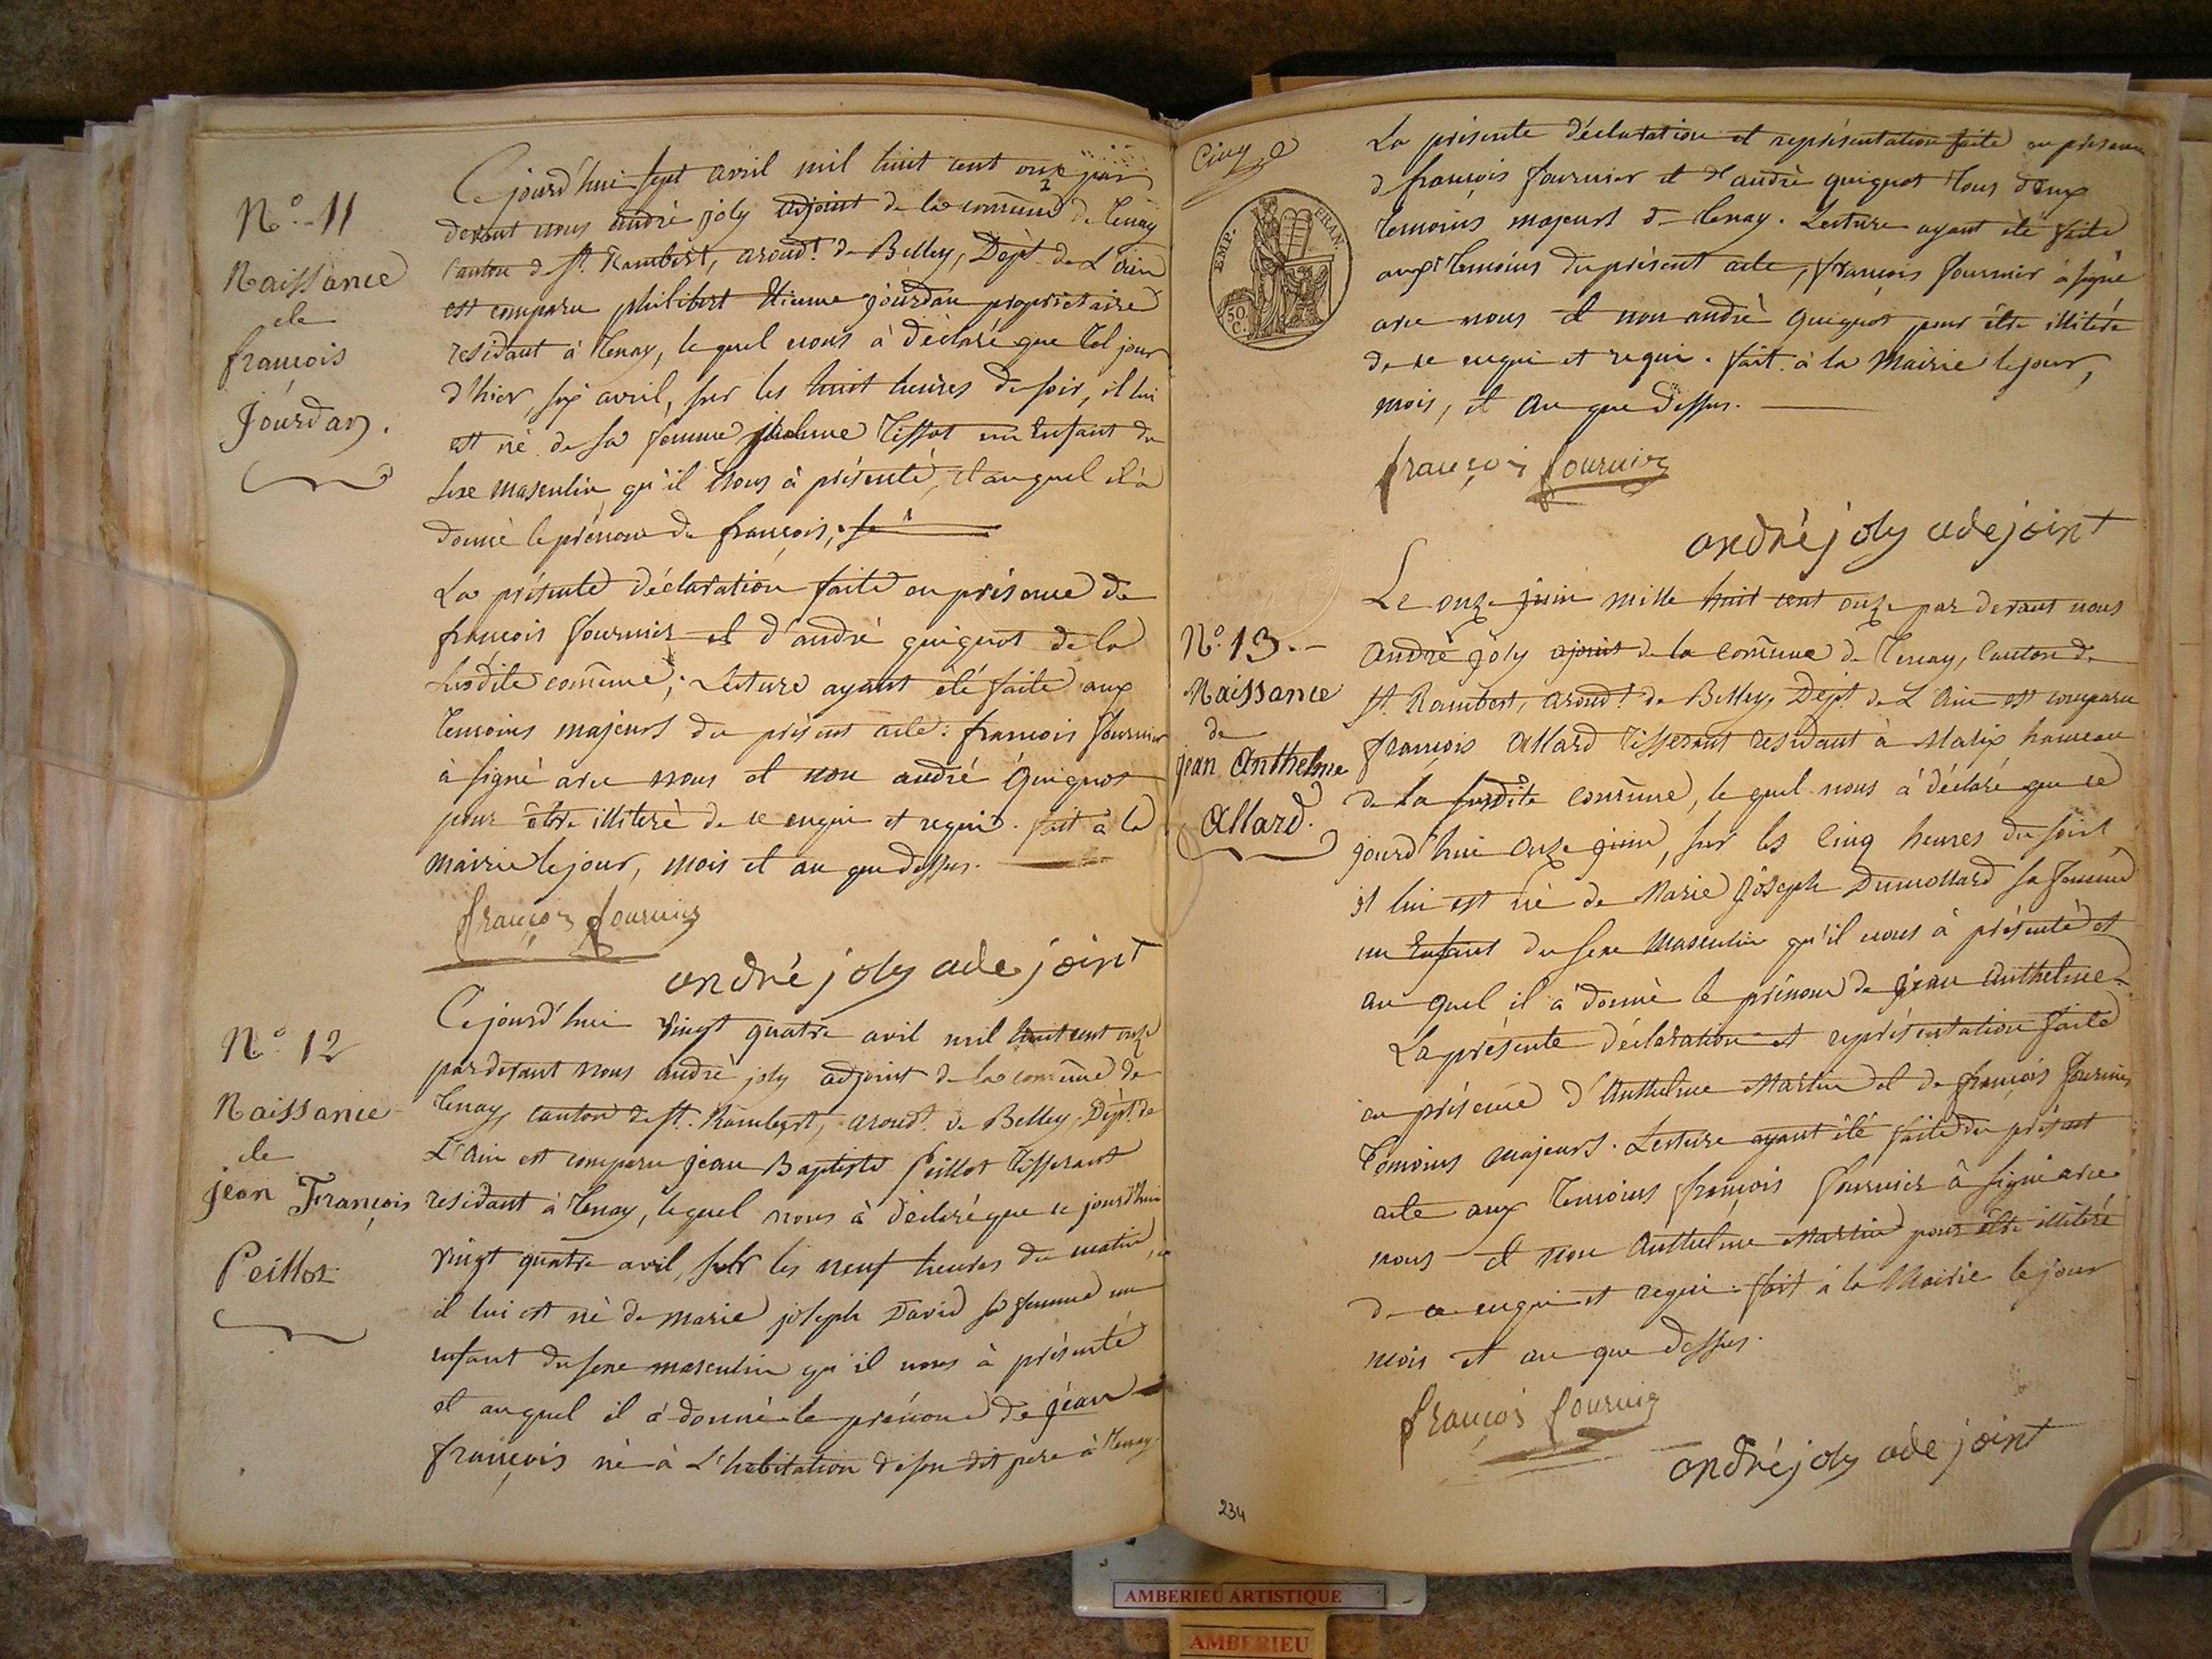 N.o 11
Naissance
de
françois
Jourdan.
Cejourd'hui sept avril mil huit cent onze par
devant nous andré joly adjoint de la commune de Tenay
Canton de St. Rambert, arond.t de Belley, Dept. de L'ain
est comparu philibert Etienne jourdan proprietaire
residant à Tenay, le quel nous à déclaré que Tel jour
d'hier, six avril, sur les huit heures du soir, il lui
est né de sa femme Tissot un Enfant du
sexe masculin qu'il nous à présenté, et auquel il à
donné le prénom de françois;
La présente déclaration faite en présence de
françois fournier et d'andré quignot de la
susdite commune; Lecture ayant été faite aux
temoins majeurs du présent acte: françois fournier
à signé avec nous et non andré Quignot
pour être illiteré de ce enqui et requi. fait à la
mairie le jour, mois et an que dessus.
françois fournier
andré joly adejoint
N.o 12
Naissance
de
jean François
Peillot
Cejourd'hui vingt quatre avril mil huit cent onze
pardevant nous andré joly adjoint de la commune de
Tenay, canton de St. Rambert, arond.t de Belley, Dépt. de
L'Ain est comparu jean Baptiste Peillot Tisserant
residant à Tenay, lequel nous à déclaré que ce jourd'hui
vingt quatre avril, sur les neuf heures du matin,
il lui est né de marie joseph David sa femme un
enfant du sexe masculin qu'il nous à présenté
et auquel il à donné le prénom de jean
françois né à L'habitation de son dit pere à Tenay
Cinq
EMP. FRAN.
50.
C.
La présente déclaration et représentation faite en présence
de françois fournier et d'andré quignot tous deux
temoins majeurs de Tenay. Lecture ayant été faite
aux temoins du présent acte, françois fournier à signé
avec nous et non andré Quignot pour être illiteré
de ce enqui et requi. fait à la Mairie le jour,
mois, et an que dessus.
françois fournier
andré joly adejoint
N.o 13.
Naissance
de
jean Anthelme
Allard.
Le onze juin mille huit cent onze par devant nous
André joly ajoint de la commune de Tenay, Canton de
St. Rambert, arond.t de Belley, Dépt. de L'Ain est comparu
françois Allard Tisserant residant à Malix hameau
de la susdite commune, le quel nous à déclaré que ce
jourd'hui onze juin, sur les Cinq heures du soir
il lui est né de Marie joseph Dumollard sa femme
un Enfant du sexe Masculin qu'il nous à présenté et
au quel il à donné le prénom de jean anthelme.
La présente déclaration et représentation faite
en présence d'Anthelme Martin et de françois fournier
Temoins majeurs. Lecture ayant été faite du présent
acte aux Temoins françois fournier à signé avec
nous et non Anthelme Martin pour être illiteré
de ce enqui et requi. fait à la Mairie le jour
mois et an que dessus.
françois fournier
andré joly adejoint
234
AMBERIEU ARTISTIQUE
AMBERIEU